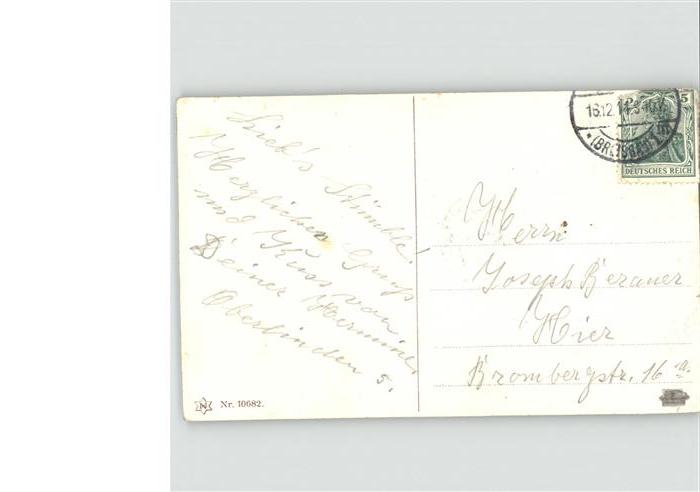 Lieb's Stümble!
Herzlichen Gruß
und Kuss von
Deiner Hermine.
Oberlinden 5.
N Nr. 10682.
16.12.1
(BREISGAU)
5
DEUTSCHES REICH
Herrn
Joseph Berauer
Hier
Brombergstr. 16 a.